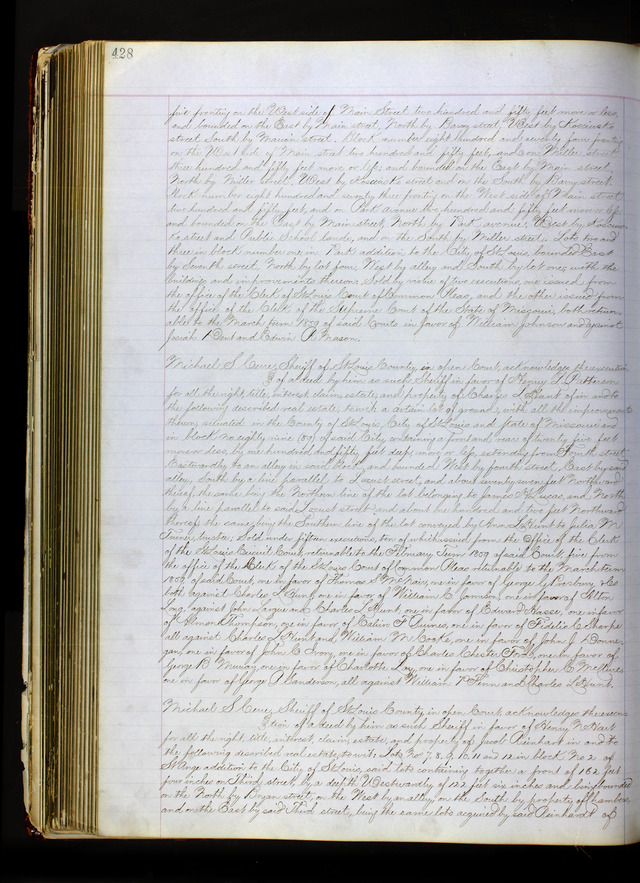 428
five fronting on the West side of Main Street two hundred and fifty feet more or less,
and bounded on the East by Main street, North by Barry street, West by Kosciusko
street South by Marion street. Block number eight hundred and seventy four fronting
on the West side of Main street two hundred and fifty feet, and on Miller street
three hundred and fifty feet more or less, and bounded on the East by Main street
North by Miller street, West by Kosciusko street and on the South by Barry street.
Block number eight hundred and seventy three fronting on the West side of Main street
two hundred and fifty feet, and on Park avenue three hundred and fifty feet more or less
and bounded on the East by Main street, North by Park avenue, West by Kosciusko
street and Public School lands, and on the South by Miller street. Lots two and
three in block number one in Park addition to the City of St Louis, bounded East
by Seventh street, North by lot four, West by alley and South by lot one, with the
buildings and improvements thereon. Sold by virtue of two executions, one issued from
the office of the Clerk of St Louis Court of Common Pleas, and the other issued from
the office of the Clerk of the Supreme Court of the State of Missouri, both return-
able to the March term 1859 of said Courts, in favor of William Johnson and against
Josiah Dent and Edwin R Mason.
Michael S. Cerre, Sheriff of St Louis County, in open Court, acknowledges the execution
of a deed by him as such Sheriff in favor of Henry L Patterson
for all the right, title, interest, claim, estate, and property of Charles L Hunt of in and to
the following described real estate, to wit, a certain lot of ground, with all the improvements
thereon, situated in the County of St Louis, City of St Louis and State of Missouri and
in block No eighty nine (89) of said City, containing a front and rear of twenty five feet
more or less, by one hundred and fifty feet deep, more or less, extending from Fourth street
Eastwardly to an alley in said block, and bounded West by fourth street, East by said
alley, South by a line parallel to Locust street, and about seventy seven feet Northward
thereof, the same being the Northern line of the lot belonging to James H Lucas, and North
by a line parallel to said Locust street, and about one hundred and two feet Northward
thereof the same being the Southern line of the lot conveyed by Ann L Hunt to Julia M
Turner, trustee; Sold under fifteen executions, ten of which issued from the Office of the Clerk
of the St Louis Circuit Court, returnable to the February Term 1859 of said Court, five from
the office of the Clerk of the St Louis Court of Common Pleas returnable to the March term
1859 of said Court, one in favor of Thomas S McNair, one in favor of George L
both against Charles L Hunt, one in favor of William C Jamison, one in favor of Alton
Long, against John Largue and Charles L Hunt, one in favor of Edward Hasse, one in favor
of Almond Thompson, one in favor of, one in favor of Fidelio C Sharpe
all against Charles L Hunt and William M Cooke, one in favor of John J Donne-
gan, one in favor of John C Ivory, one in favor of Charles Chester, one in favor of
George B Murray, one in favor of Charlotte Lay, one in favor of Christopher C McClure
one in favor of George A Sanderson, all against William T Finn and Charles L Hunt.
Michael S. Cerre, Sheriff of St Louis County, in open Court acknowledges the execu-
tion of a deed by him as such Sheriff in favor of Henry N Hart
for all the right, title, interest, claim, estate, and property of Jacob Reinhart in and to
the following described real estate, to wit: Lots No. 7, 8, 9, 10, 11 and 12 in block No 2 of
addition to the City of St Louis, said lots containing together a front of 162 feet
four inches on Third street, by a depth Westwardly of 122 feet six inches and being bounded
on the North by Bryan street, on the West by an alley, on the South by property of Chambers
and on the East by said Third street, being the same lots acquired by said Reinhardt of